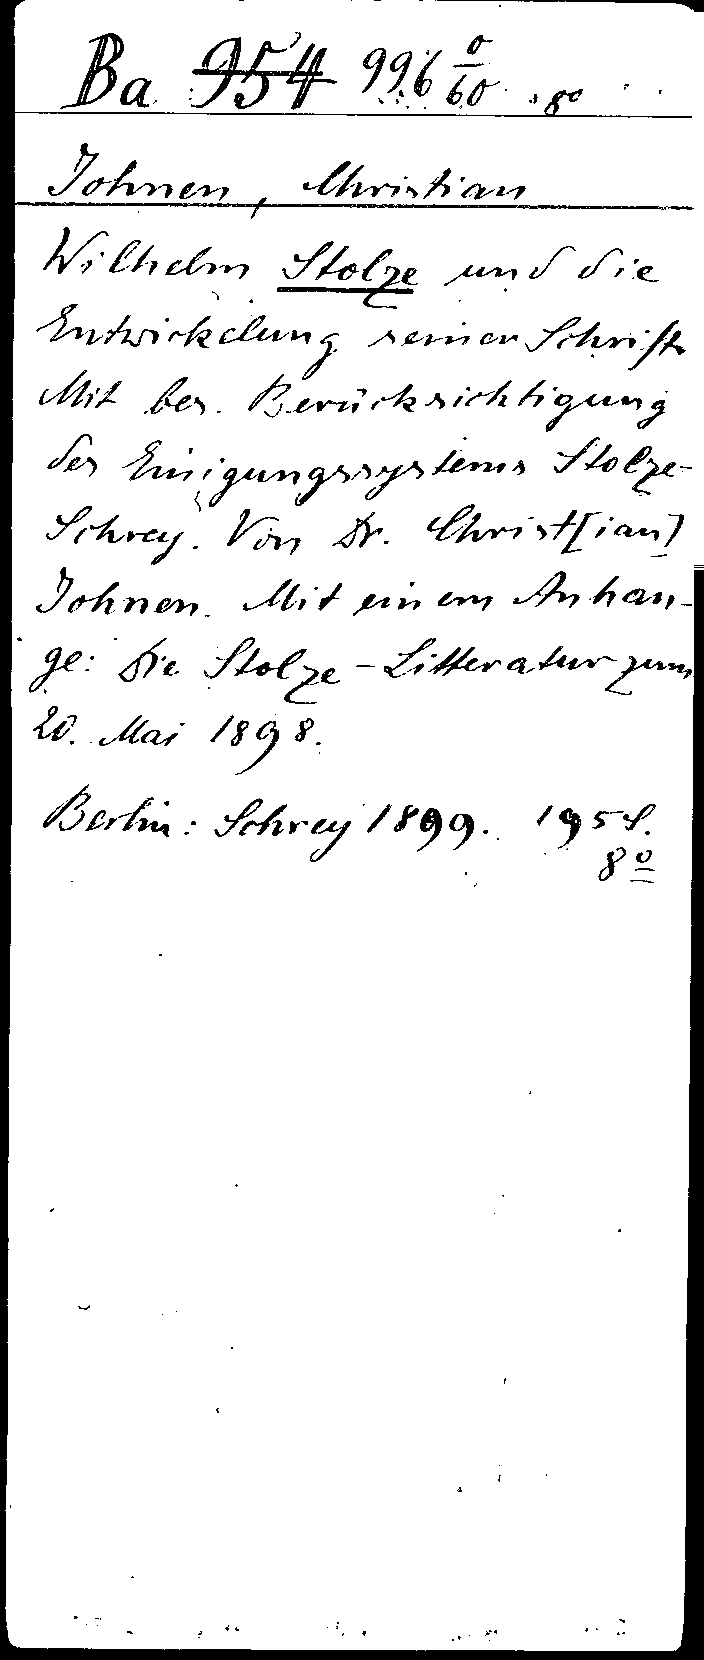 Ba 954 996 0/60 . 8o
Johnen, Christian
Wilhelm Stolze und die
Entwickelung seiner Schrift
Mit bes. Berücksichtigung
des Einigungssystems Stolze-
Schrey. Von Dr. Christ[ian]
Johnen. Mit einem Anhan-
ge: Die Stolze-Litteratur zum
20. Mai 1898.
Berlin: Schrey 1899. 195 S.
8o